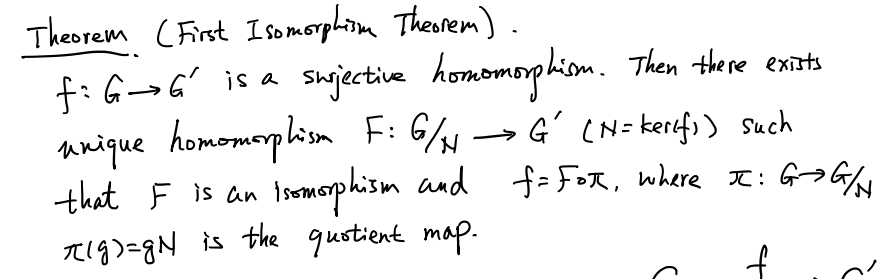 Theorem. (First Isomorphism Theorem).
f: G → G' is a surjective homomorphism. Then there exists
unique homomorphism F: G/N → G' (N=ker(f)) such
that F is an isomorphism and f=F∘π, where π: G→G/N
π(g)=gN is the quotient map.
G f G'